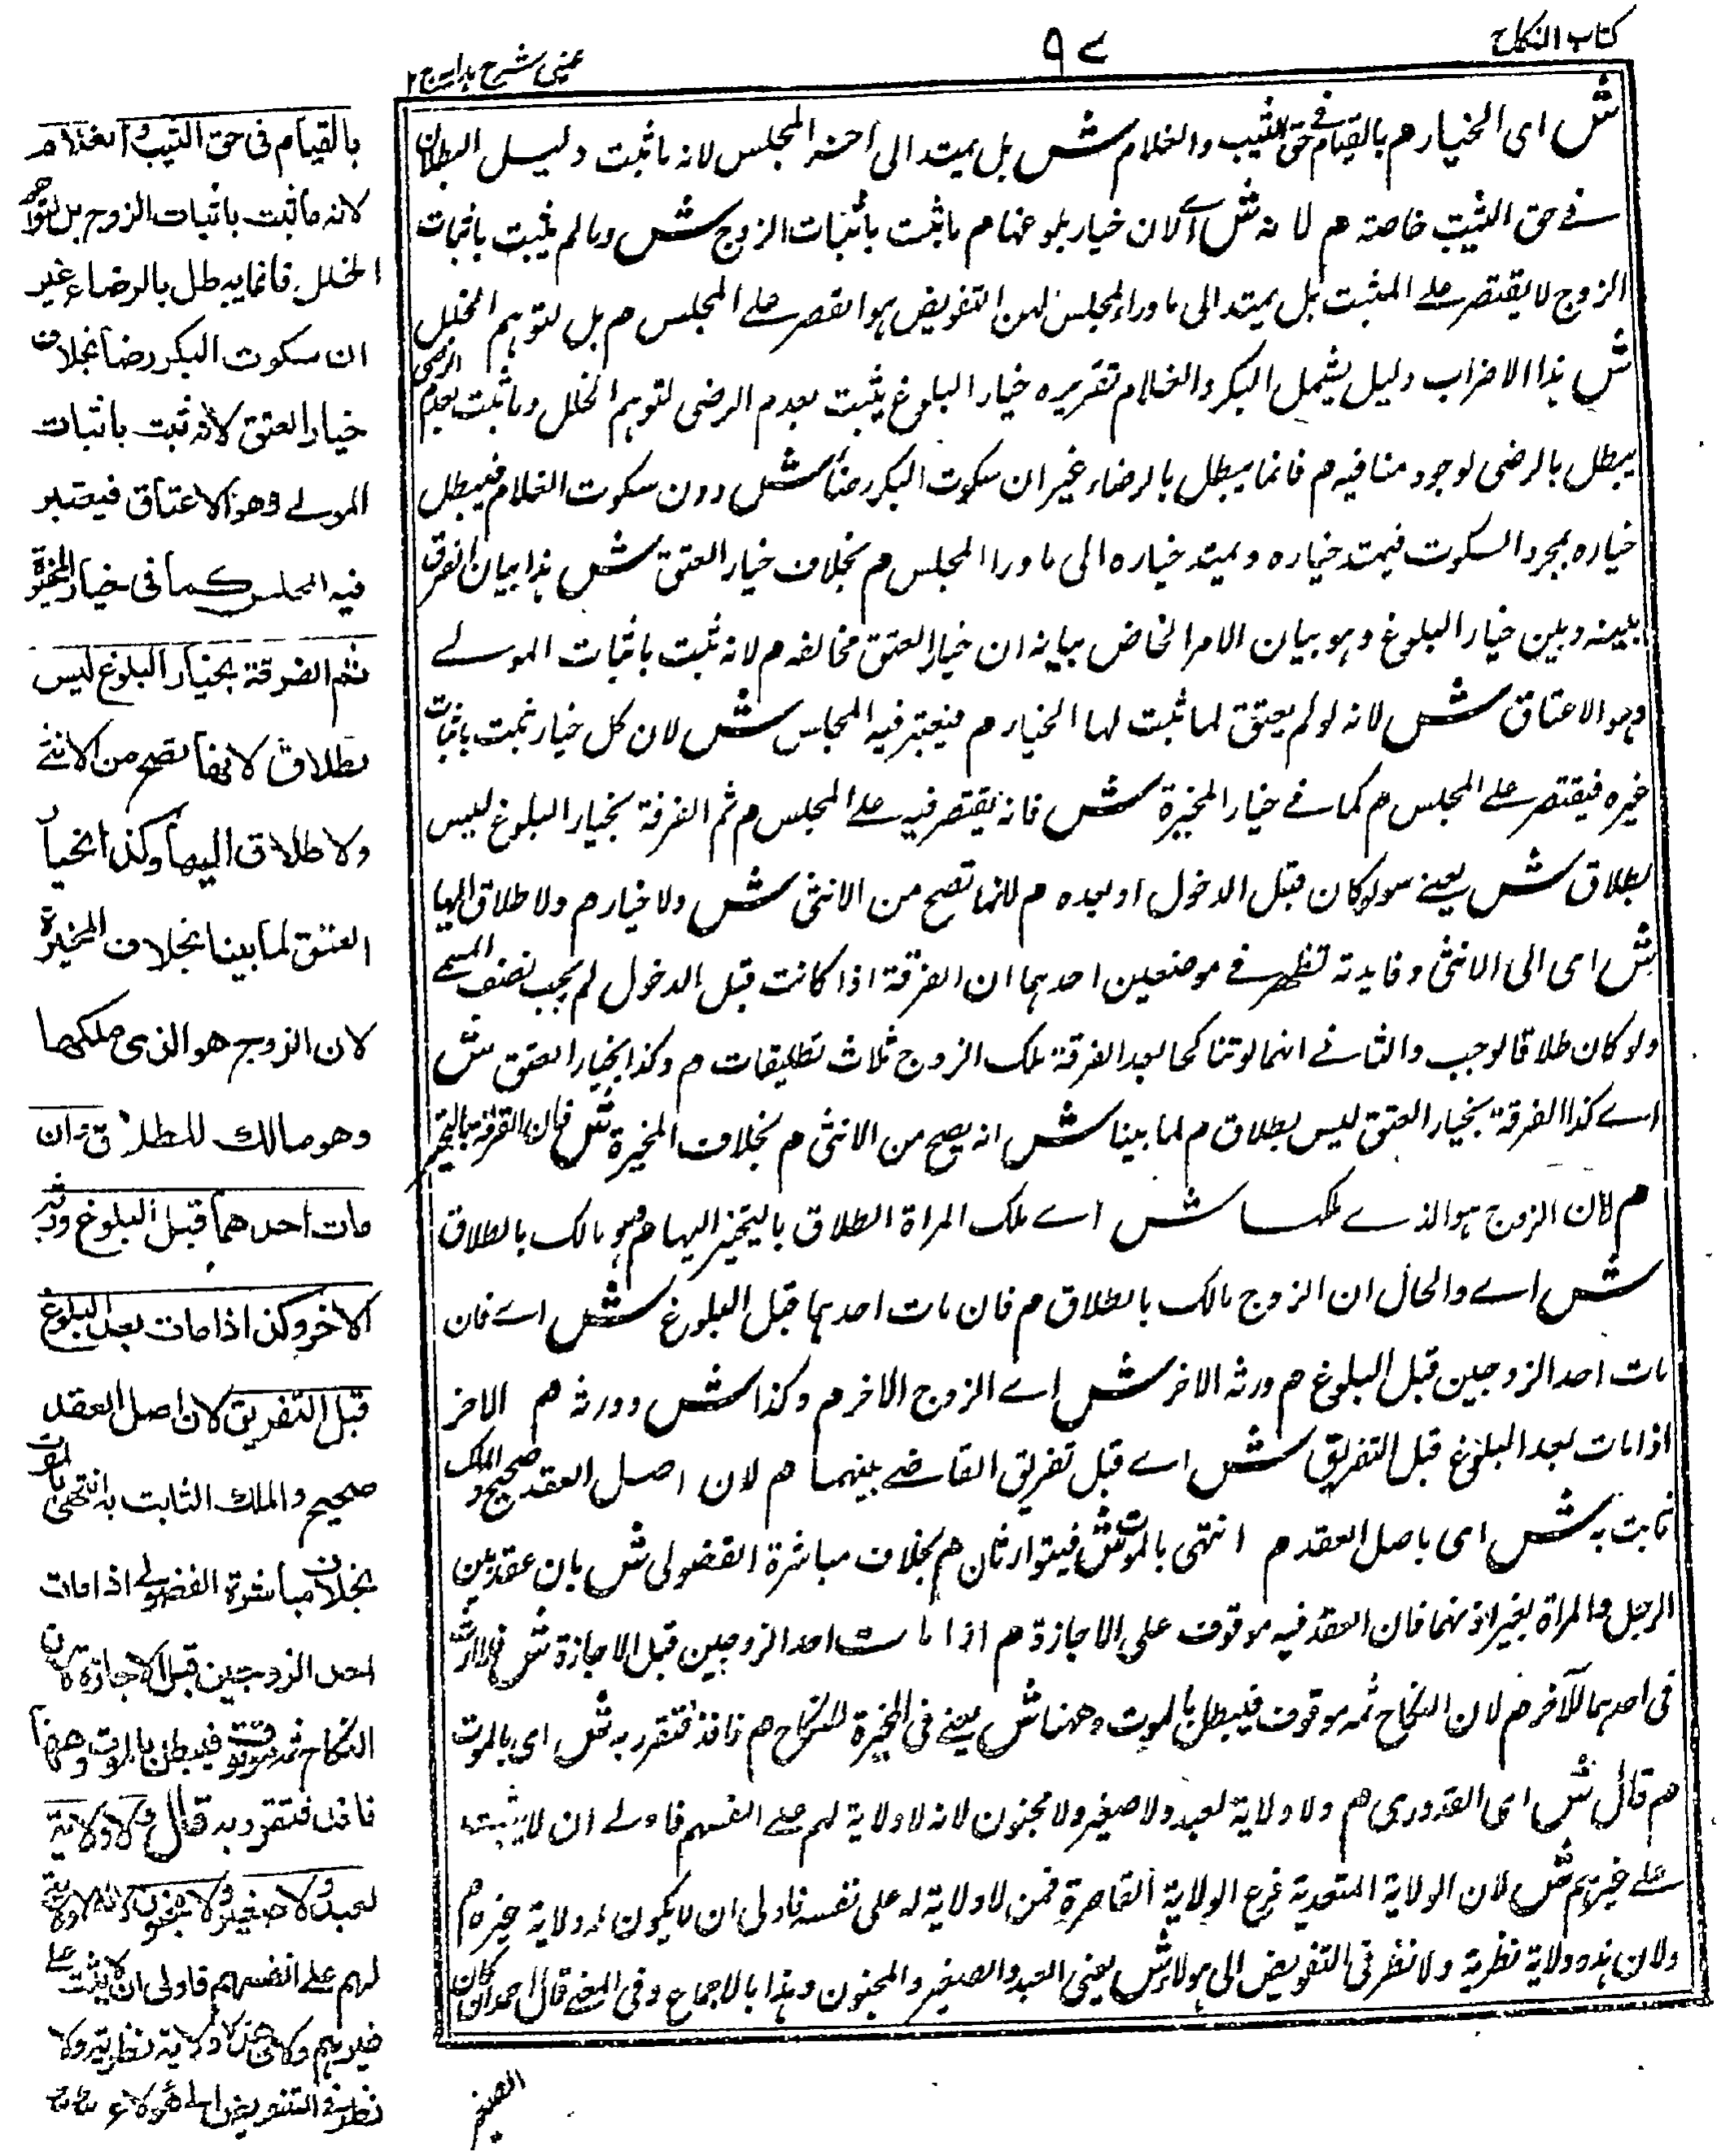 كتاب النكاح
٩٧
عينى شرح هدايه ج ٢
ش اى الخيار م بالقيام فى حق الثيب والغلام ش بل يمتد الى آخر المجلس لانه ما ثبت دليل البطلان
فى حق الثيب خاصة م لانه ش اى لان خيار بلوغها م ما ثبت باثبات الزوج ش وما لم يثبت باثبات
الزوج لا يقتصر على المثبت بل يمتد الى ما وراء المجلس لان التفويض هو القصر على المجلس م بل لتوهم الخلل
ش هذا الاضراب دليل يشمل البكر والغلام تقريره خيار البلوغ يثبت بعدم الرضى لتوهم الخلل وما ثبت بعدم الرضى
يبطل بالرضى لوجود منافيه م فانما يبطل بالرضاء غير ان سكوت البكر رضا ش دون سكوت الغلام فيبطل
خياره بمجرد السكوت فيمتد خياره ويمتد خياره الى ما ورا المجلس م بخلاف خيار العتق ش هذا بيان الفرق
بينه وبين خيار البلوغ وهو بيان الامر الخاص بيانه ان خيار العتق مخالفه م لانه ثبت باثبات المولى
وهو الاعتاق ش لانه لو لم يعتق لما ثبت لها الخيار م فيعتبر فيه المجلس ش لان كل خيار ثبت باثبات
غيره فيقتصر على المجلس م كما فى خيار المخيرة ش فانه يقتصر فيه على المجلس م ثم الفرقة بخيار البلوغ ليس
بطلاق ش يعنى سواء كان قبل الدخول او بعده م لانها تصح من الانثى ش ولا خيار م ولا طلاق اليها
ش اى الى الانثى وفايدته تظهر فى موضعين احدهما ان الفرقة اذا كانت قبل الدخول لم يجب نصف المسمى
ولو كان طلاقا لوجب والثانى انهما لو تناكحا بعد الفرقة ملك الزوج ثلاث تطليقات م وكذا بخيار العتق ش
اى كذا الفرقة بخيار العتق ليس بطلاق م لما بينا ش انه يصح من الانثى م بخلاف المخيرة ش فان الفرقة بالتخيير
م لان الزوج هو الذى ملكها ش اى ملك المراة الطلاق بالتخيير اليها م وهو مالك بالطلاق
ش اى والحال ان الزوج مالك بالطلاق م فان مات احدهما قبل البلوغ ش اى فان
مات احد الزوجين قبل البلوغ م ورثه الاخر ش اى الزوج الاخر م وكذا ش وورثه م الاخر
اذا مات بعد البلوغ قبل التفريق ش اى قبل تفريق القاضى بينهما م لان اصل العقد صحيح والملك
ثابت به ش اى باصل العقد م انتهى بالموت ش فيتوارثان م بخلاف مباشرة الفضولى ش بان عقد بين
الرجل والمراة بغير اذنهما فان العقد فيه موقوف على الاجازة م اذا مات احد الزوجين قبل الاجازة ش فلا ارث
فى احدهما للآخر م لان النكاح ثمه موقوف فيبطل بالموت وههنا ش يعنى فى المخيرة للنكاح م نافذ فتقرر به ش اى بالموت
م قال ش اى القدورى م ولا ولاية لعبد ولا صغير ولا مجنون لانه لا ولاية لهم على انفسهم فاولى ان لا يثبت
على غيرهم ش لان الولاية المتعدية فرع الولاية القاصرة فمن لا ولاية له على نفسه فاولى ان لا يكون له ولاية غيره م
ولان هذه ولاية نظرية ولا نظر فى التفويض الى هولاء ش يعنى العبد والصغير والمجنون وهذا بالاجماع وفى المغنى قال احمد ان كان
الصغير
بالقيام فى حق الثيب والغلام
لانه ما ثبت باثبات الزوج بل لتوهم
الخلل فانما يبطل بالرضاء غير
ان سكوت البكر رضا بخلاف
خيار العتق لانه ثبت باثبات
المولى وهو الاعتاق فيعتبر
فيه المجلس كما فى خيار المخيرة
ثم الفرقة بخيار البلوغ ليس
بطلاق لانها تصح من الانثى
ولا طلاق اليها وكذا بخيار
العتق لما بينا بخلاف المخيرة
لان الزوج هو الذى ملكها
وهو مالك للطلاق وان
مات احدهما قبل البلوغ ورثه
الاخر وكذا اذا مات بعد البلوغ
قبل التفريق لان اصل العقد
صحيح والملك الثابت به انتهى بالموت
بخلاف مباشرة الفضولى اذا مات
احد الزوجين قبل الاجازة لان
النكاح ثمه موقوف فيبطل بالموت وههنا
نافذ فتقرر به قال ولا ولاية
لعبد ولا صغير ولا مجنون لانه لا ولاية
لهم على انفسهم فاولى ان لا يثبت على
غيرهم ولان هذه ولاية نظرية ولا
نظر فى التفويض الى هولاء